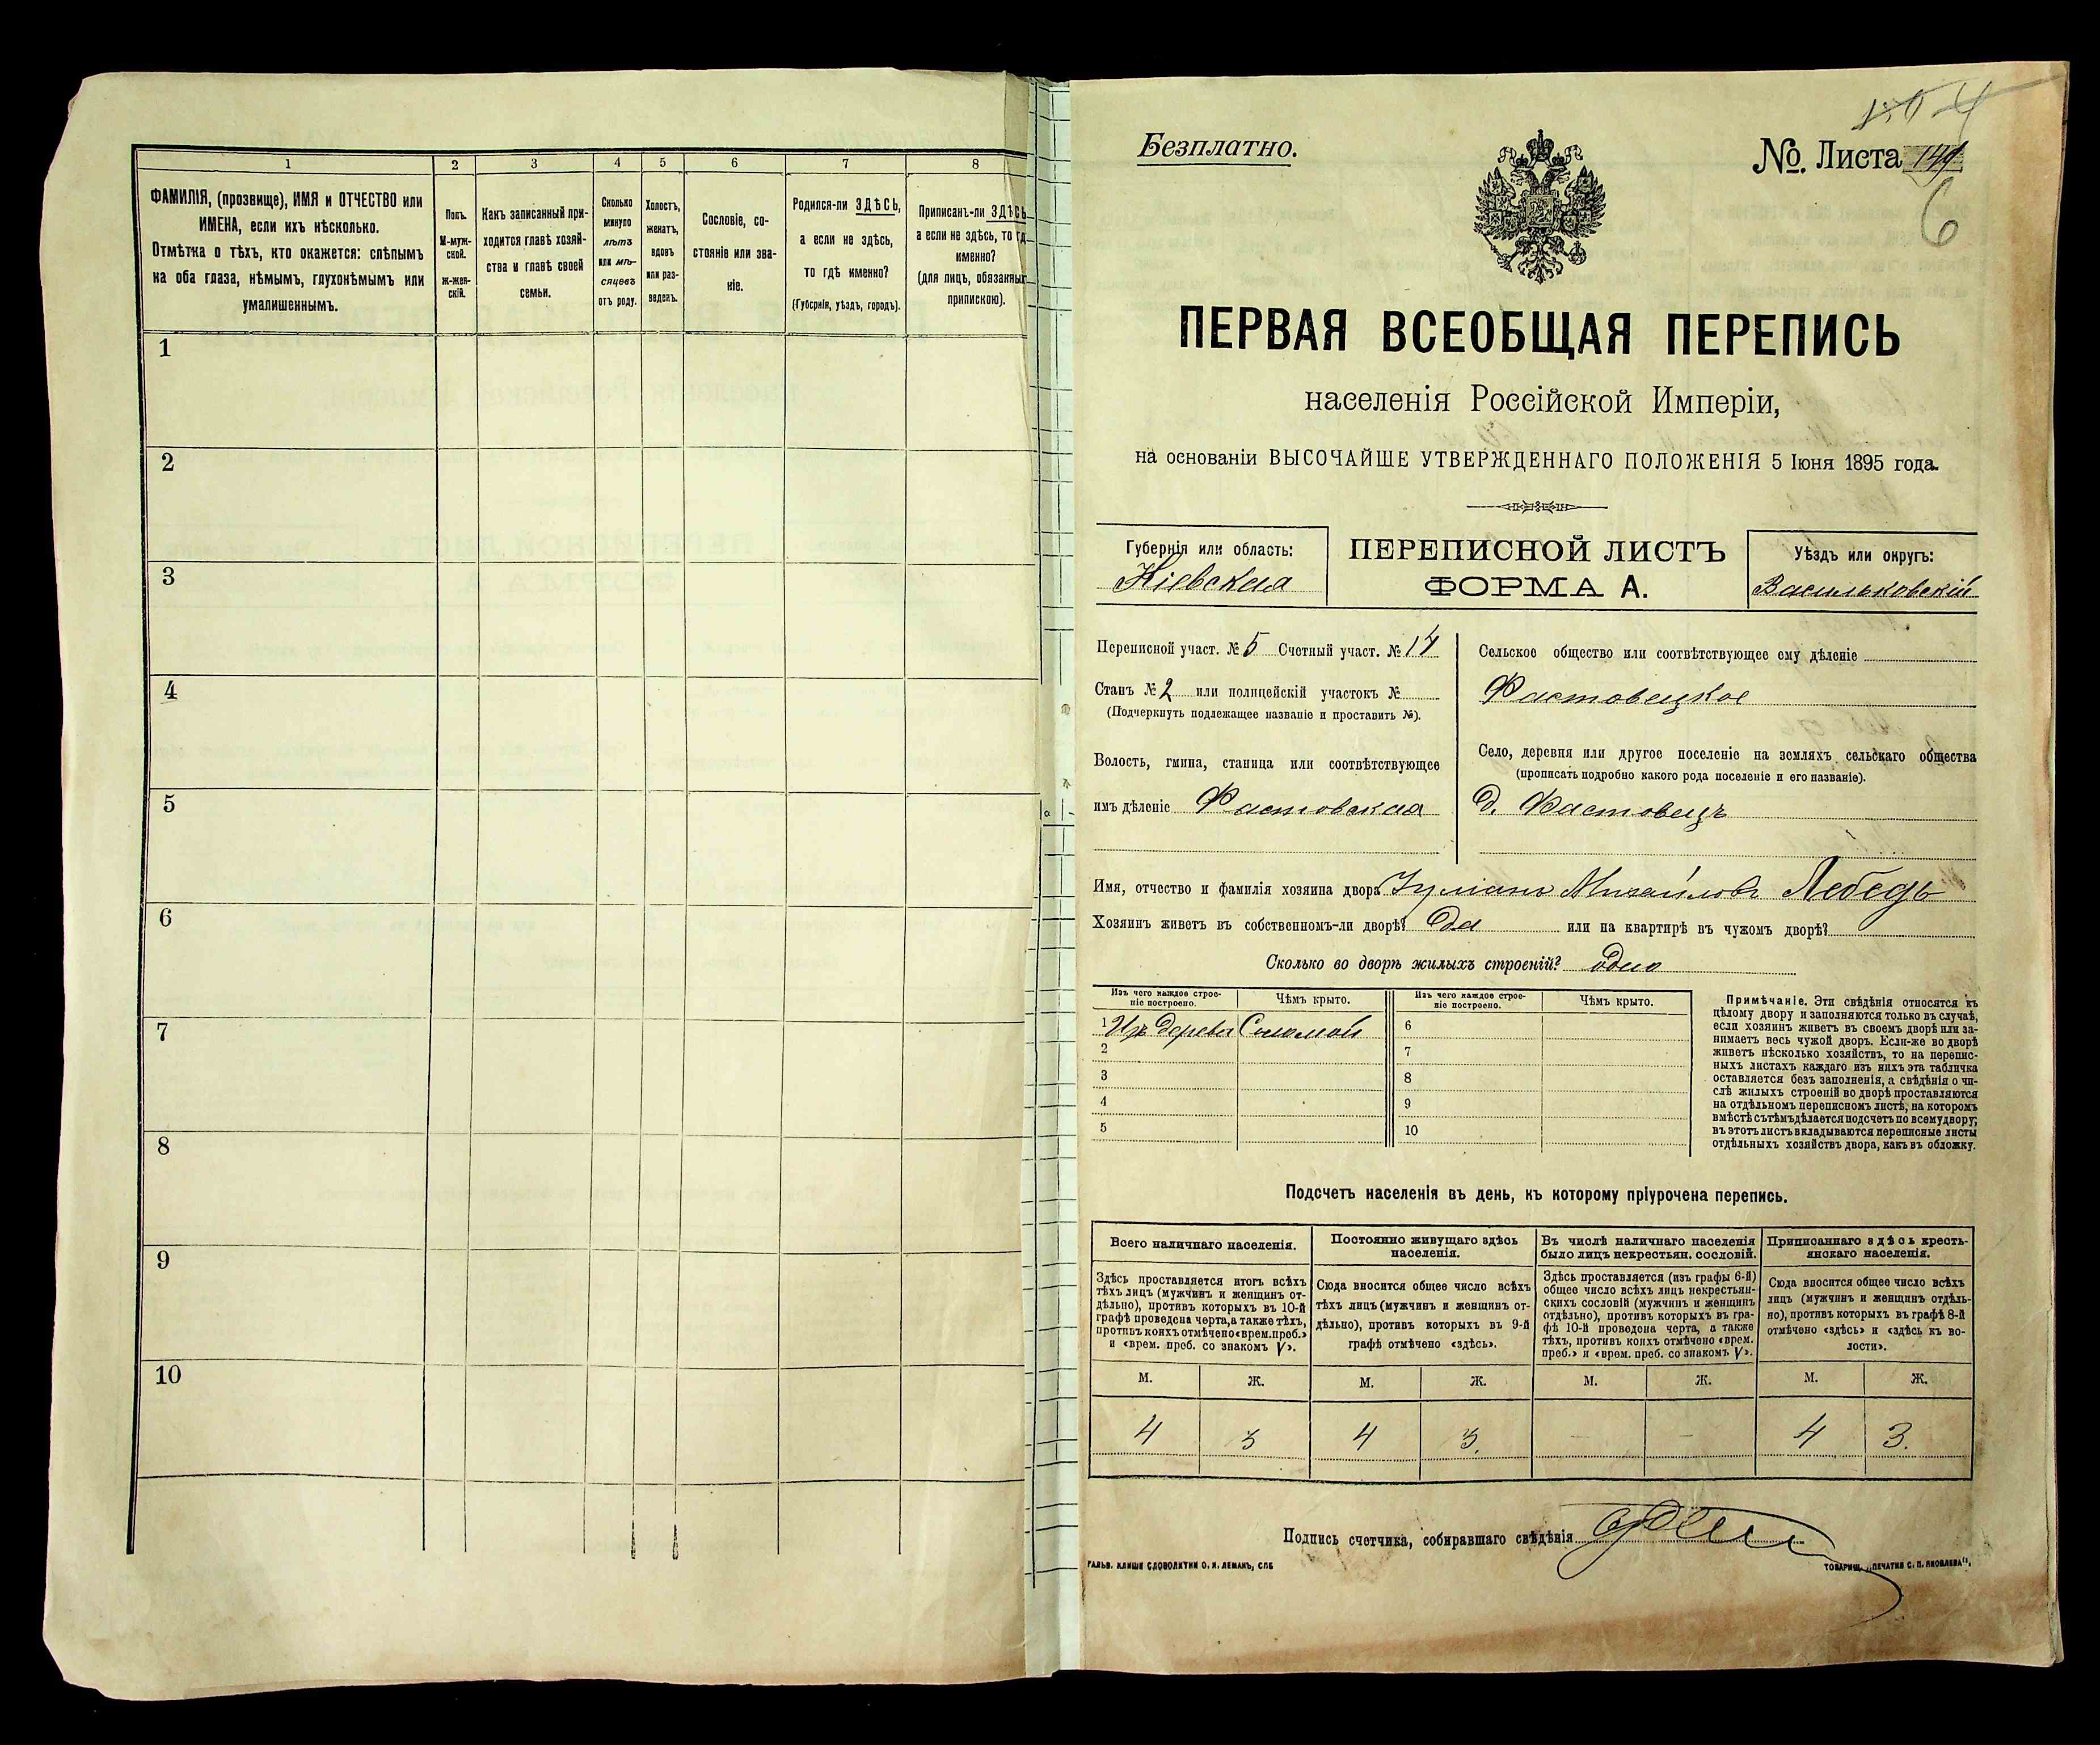 1 2 3 4 5 6 7 8
ФАМИЛІЯ, (прозвище), ИМЯ и ОТЧЕСТВО или
ИМЕНА, если ихъ нѣсколько.
Отмѣтка о тѣхъ, кто окажется: слѣпымъ
на оба глаза, нѣмымъ, глухонѣмымъ или
умалишеннымъ.
Полъ.
М-муж-
ской.
Ж-жен-
скій.
Какъ записанный при-
ходится главѣ хозяй-
ства и главѣ своей
семьи.
Сколько
минуло
лѣтъ
или мѣ-
сяцевъ
отъ роду.
Холостъ,
женатъ,
вдовъ
или раз-
веденъ.
Сословіе, со-
стояніе или зва-
ніе.
Родился-ли ЗДѢСЬ,
а если не здѣсь,
то гдѣ именно?
(Губернія, уѣздъ, городъ).
Приписанъ-ли ЗДѢСЬ
а если не здѣсь, то гд
именно?
(для лицъ, обязанных
припискою).
1
2
3
4
5
6
7
8
9
10
Безплатно.
№. Листа
6
ПЕРВАЯ ВСЕОБЩАЯ ПЕРЕПИСЬ
населенія Россійской Имперіи,
на основаніи ВЫСОЧАЙШЕ УТВЕРЖДЕННАГО ПОЛОЖЕНІЯ 5 Іюня 1895 года.
Губернія или область:
Кіевская
ПЕРЕПИСНОЙ ЛИСТЪ
ФОРМА А.
Уѣздъ или округъ:
Васильковскій
Переписной участ. № 5 Счетный участ. № 14
Станъ № 2 или полицейскій участокъ №
(Подчеркнуть подлежащее названіе и проставить №).
Волость, гмина, станица или соотвѣтствующее
имъ дѣленіе Фастовская
Сельское общество или соотвѣтствующее ему дѣленіе
Фастовецкое
Село, деревня или другое поселеніе на земляхъ сельскаго общества
(прописать подробно какого рода поселеніе и его названіе).
д. Фастовецъ
Имя, отчество и фамилія хозяина двора Михайловъ Лебедь
Хозяинъ живетъ въ собственномъ-ли дворѣ? Да или на квартирѣ въ чужомъ дворѣ?
Сколько во дворѣ жилыхъ строеній? одно
Изъ чего каждое строе-
ніе построено.
Чѣмъ крыто.
Изъ чего каждое строе-
ніе построено.
Чѣмъ крыто.
1 Изъ дерева Соломой
2
3
4
5
6
7
8
9
10
Примѣчаніе. Эти свѣдѣнія относятся къ
цѣлому двору и заполняются только въ случаѣ,
если хозяинъ живетъ въ своемъ дворѣ или за-
нимаетъ весь чужой дворъ. Если-же во дворѣ
живетъ нѣсколько хозяйствъ, то на перепис-
ныхъ листахъ каждаго изъ нихъ эта табличка
оставляется безъ заполненія, а свѣдѣнія о чи-
слѣ жилыхъ строеній во дворѣ проставляются
на отдѣльномъ переписномъ листѣ, на которомъ
вмѣстѣ съ тѣмъ дѣлается подсчетъ по всему двору;
въ этотъ листъ вкладываются переписные листы
отдѣльныхъ хозяйствъ двора, какъ въ обложку.
Подсчетъ населенія въ день, къ которому пріурочена перепись.
Всего наличнаго населенія.
Здѣсь проставляется итогъ всѣхъ
тѣхъ лицъ (мужчинъ и женщинъ от-
дѣльно), противъ которыхъ въ 10-й
графѣ проведена черта, а также тѣхъ,
противъ коихъ отмѣчено «врем. преб.»
и «врем. преб. со знакомъ V».
Постоянно живущаго здѣсь
населенія.
Сюда вносится общее число всѣхъ
тѣхъ лицъ (мужчинъ и женщинъ от-
дѣльно), противъ которыхъ въ 9-й
графѣ отмѣчено «здѣсь».
Въ числѣ наличнаго населенія
было лицъ некрестьян. сословій.
Здѣсь проставляется (изъ графы 6-й)
общее число всѣхъ лицъ некрестьян-
скихъ сословій (мужчинъ и женщинъ
отдѣльно), противъ которыхъ въ гра-
фѣ 10-й проведена черта, а также
тѣхъ, противъ коихъ отмѣчено «врем.
преб.» и «врем. преб. со знакомъ V».
Приписаннаго здѣсь кресть-
янскаго населенія.
Сюда вносится общее число всѣхъ
лицъ (мужчинъ и женщинъ отдѣль-
но), противъ которыхъ въ графѣ 8-й
отмѣчено «здѣсь» и «здѣсь къ во-
лости».
М. Ж. М. Ж. М. Ж. М. Ж.
4 3 4 3. — — 4 3.
Подпись счетчика, собиравшаго свѣдѣнія
ГАЛЬВ. КЛИШИ СЛОВОЛИТНИ О. И. ЛЕМАНЪ, СПБ
ТОВАРИЩ. „ПЕЧАТНЯ С. П. ЯКОВЛЕВА".